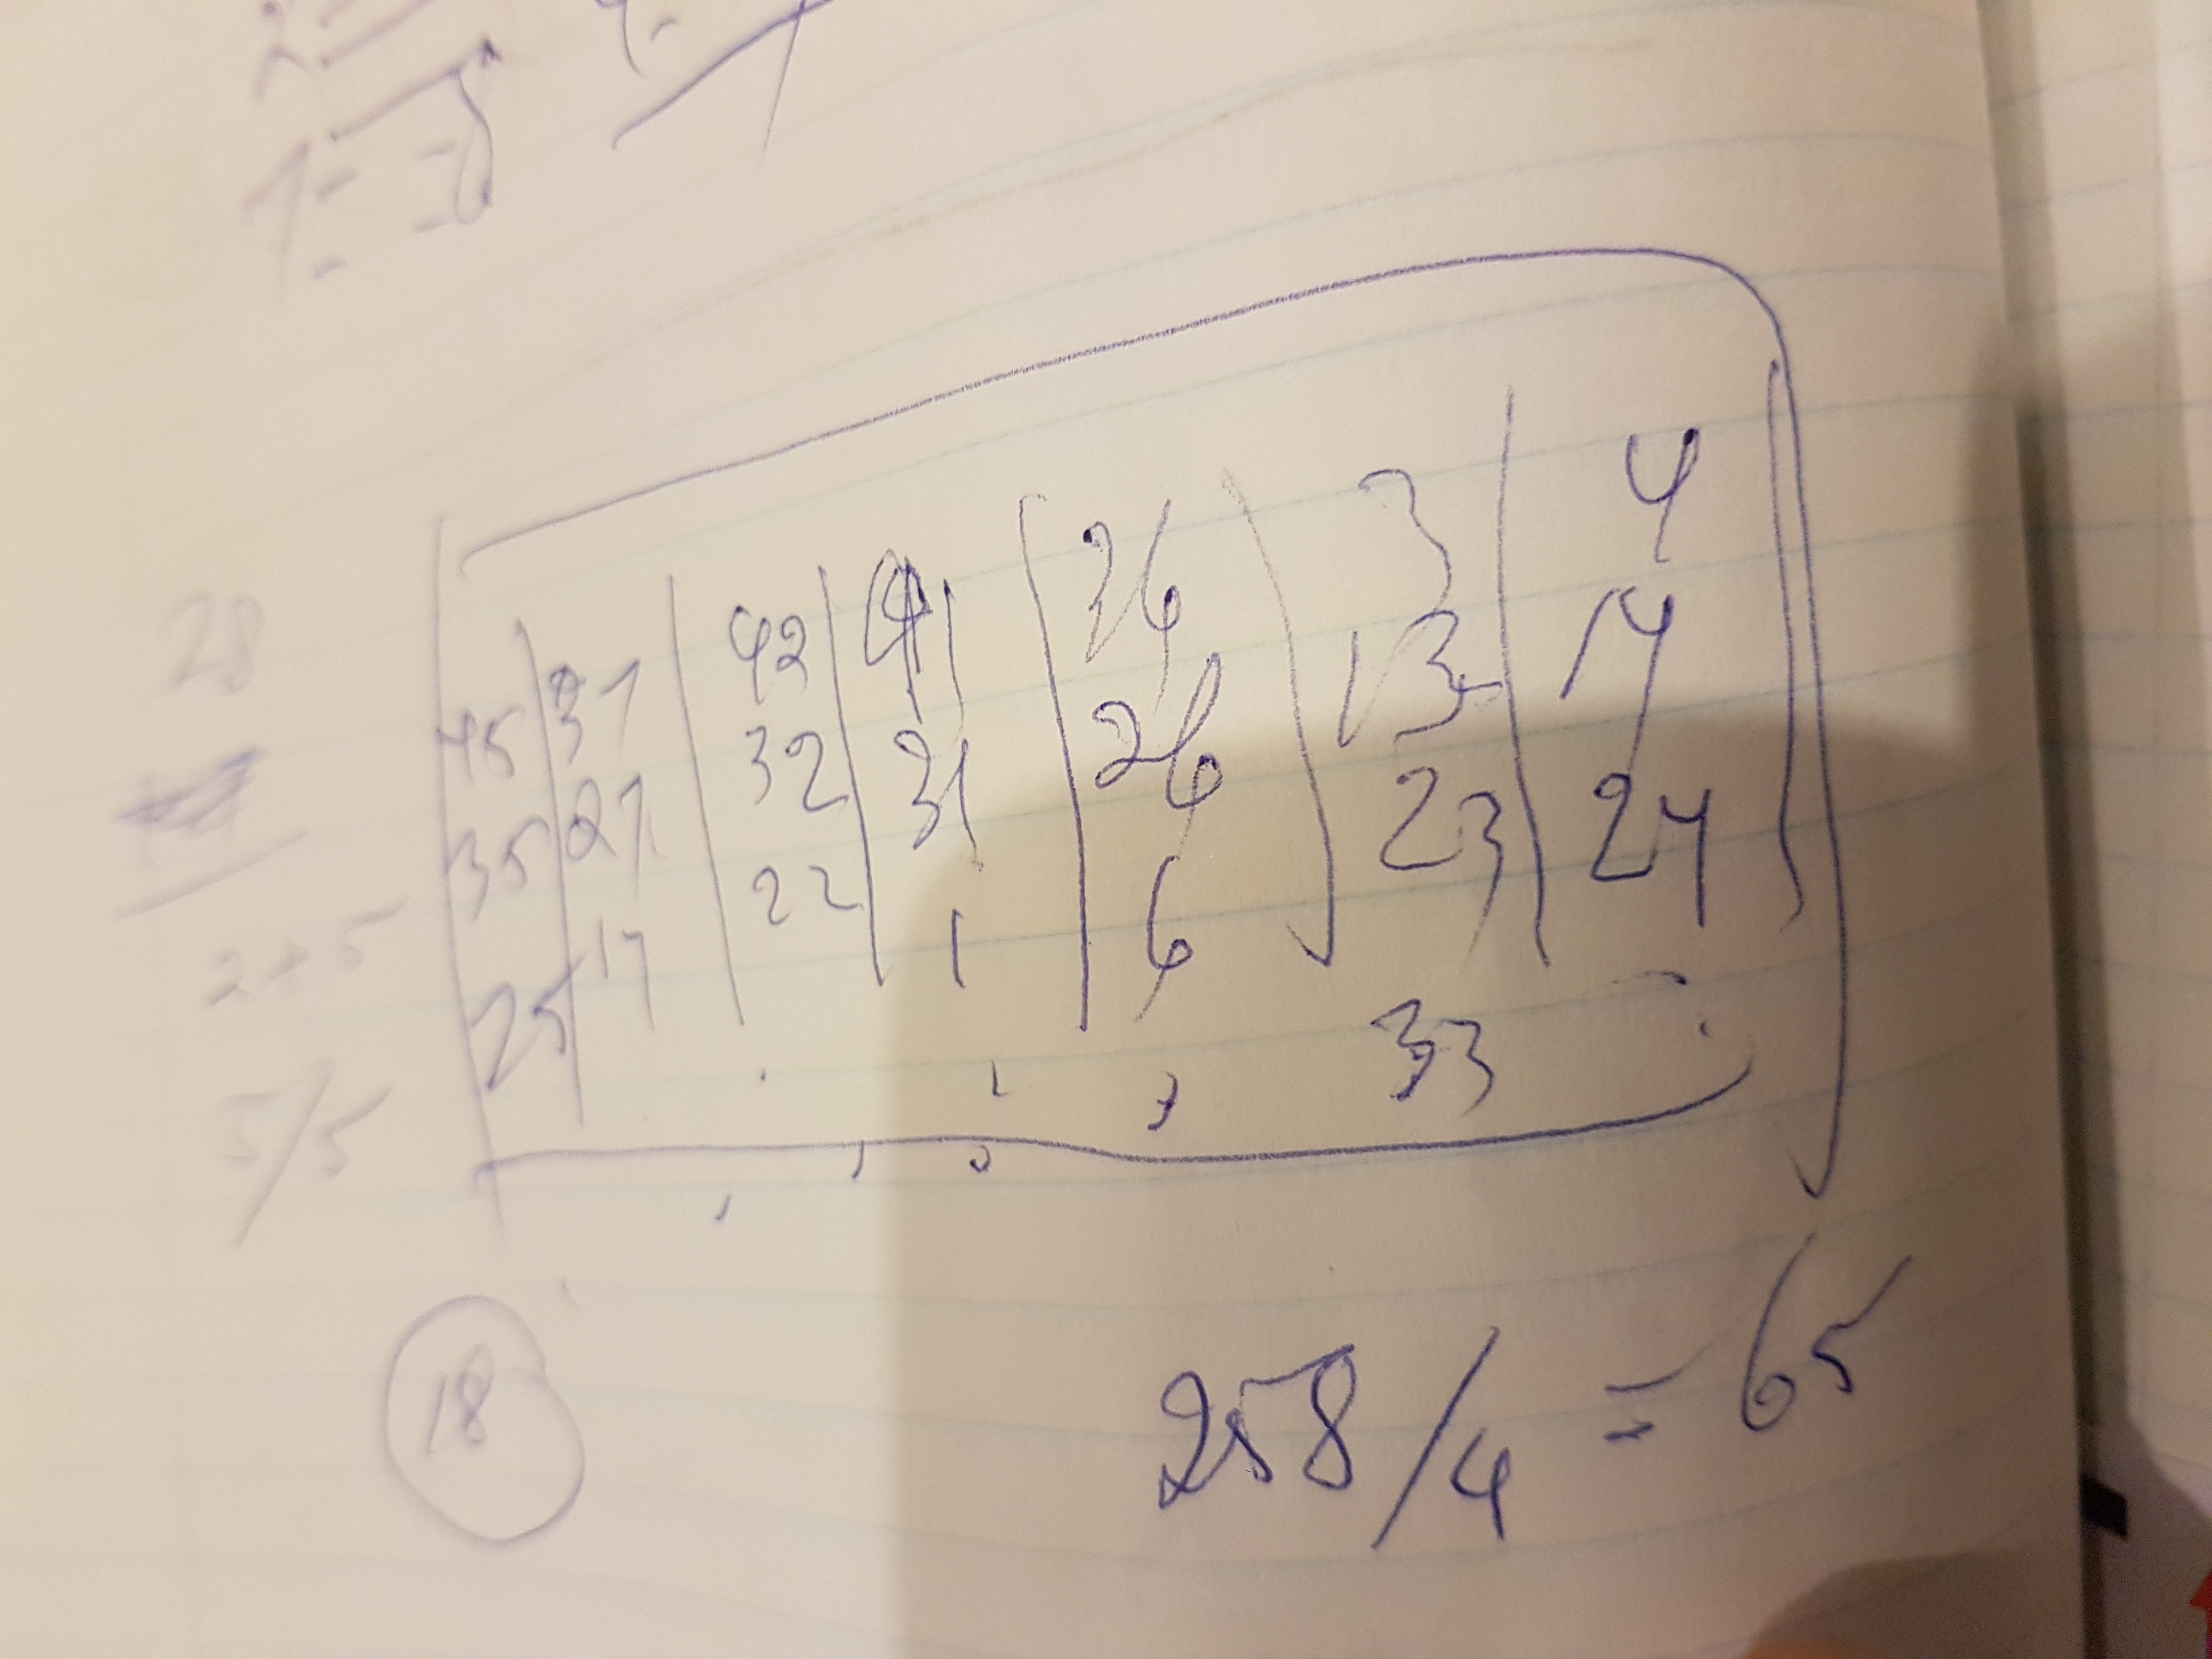 28
2+5
5/5
45 | 37 | 42 | 41 | 36 | 3 | 4
35 | 27 | 32 | 31 | 26 | 13 | 14
25 | 17 | 22 | 1 | 6 | 23 | 24
33
18
258/4 = 65